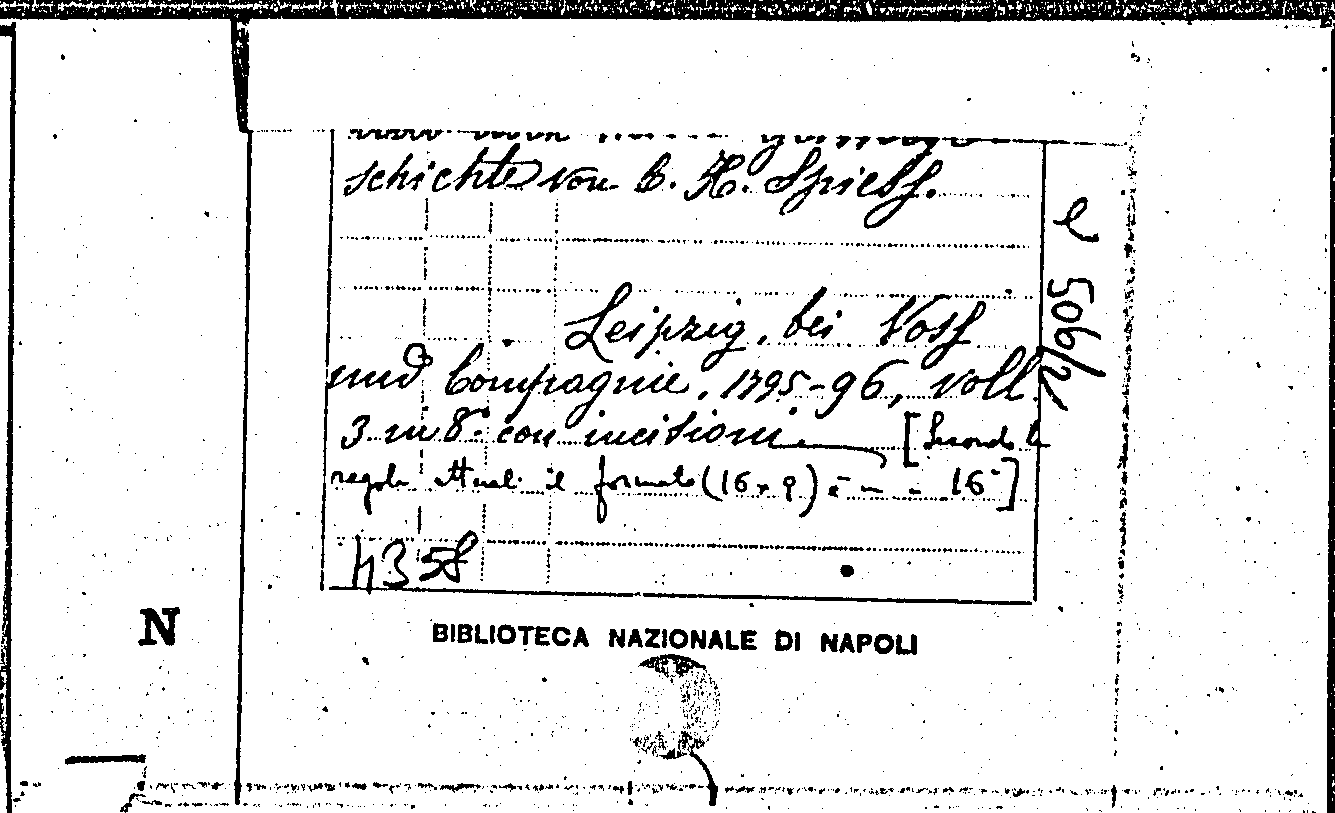 schichte von C. H. Spiess.
Leipzig, bei Voss
und Compagnie, 1795-96, voll.
3 in 8° con incisioni. [Secondo le
regole attuali il formato (16 x 9) è in - 16°]
4358
e 506/2
N
BIBLIOTECA NAZIONALE DI NAPOLI